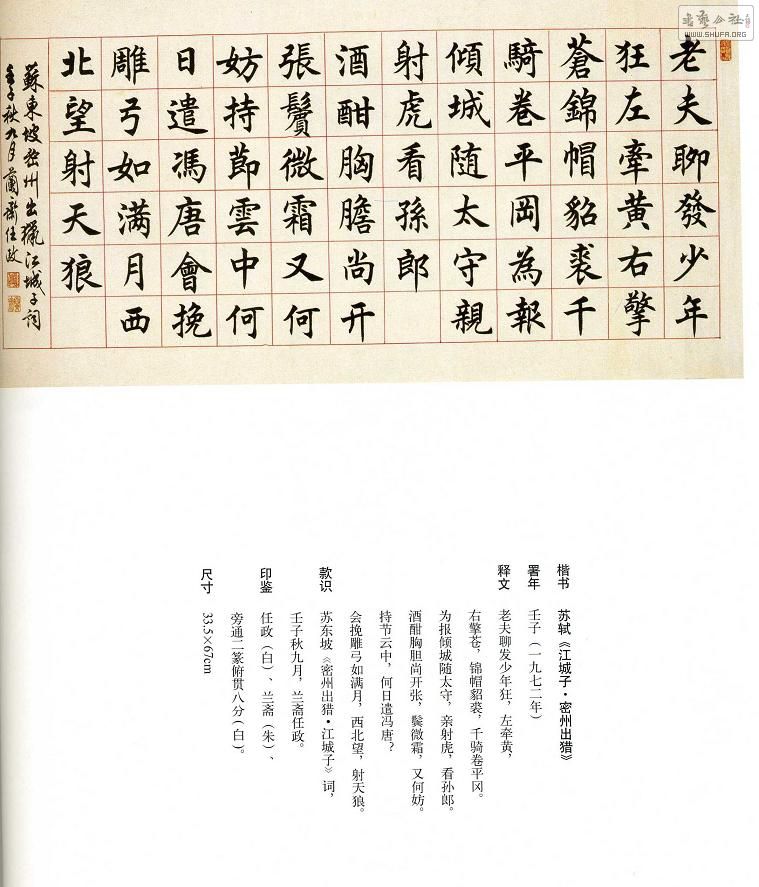 書藝公社
WWW.SHUFA.ORG
老夫聊發少年
狂左牽黃右擎
蒼錦帽貂裘千
騎卷平岡為報
傾城随太守親
射虎看孫郎
酒酣胸膽尚开
張鬢微霜又何
妨持節雲中何
日遣馮唐會挽
雕弓如满月西
北望射天狼
蘇東坡密州出獵江城子詞
壬子秋九月蘭齋任政
楷书 苏轼《江城子·密州出猎》
署年 壬子（一九七二年）
释文 老夫聊发少年狂，左牵黄，
右擎苍，锦帽貂裘，千骑卷平冈。
为报倾城随太守，亲射虎，看孙郎。
酒酣胸胆尚开张，鬓微霜，又何妨。
持节云中，何日遣冯唐？
会挽雕弓如满月，西北望，射天狼。
款识 苏东坡《密州出猎·江城子》词，
壬子秋九月，兰斋任政。
印鉴 任政（白）、兰斋（朱）、
旁通二篆俯贯八分（白）。
尺寸 33.5×67cm